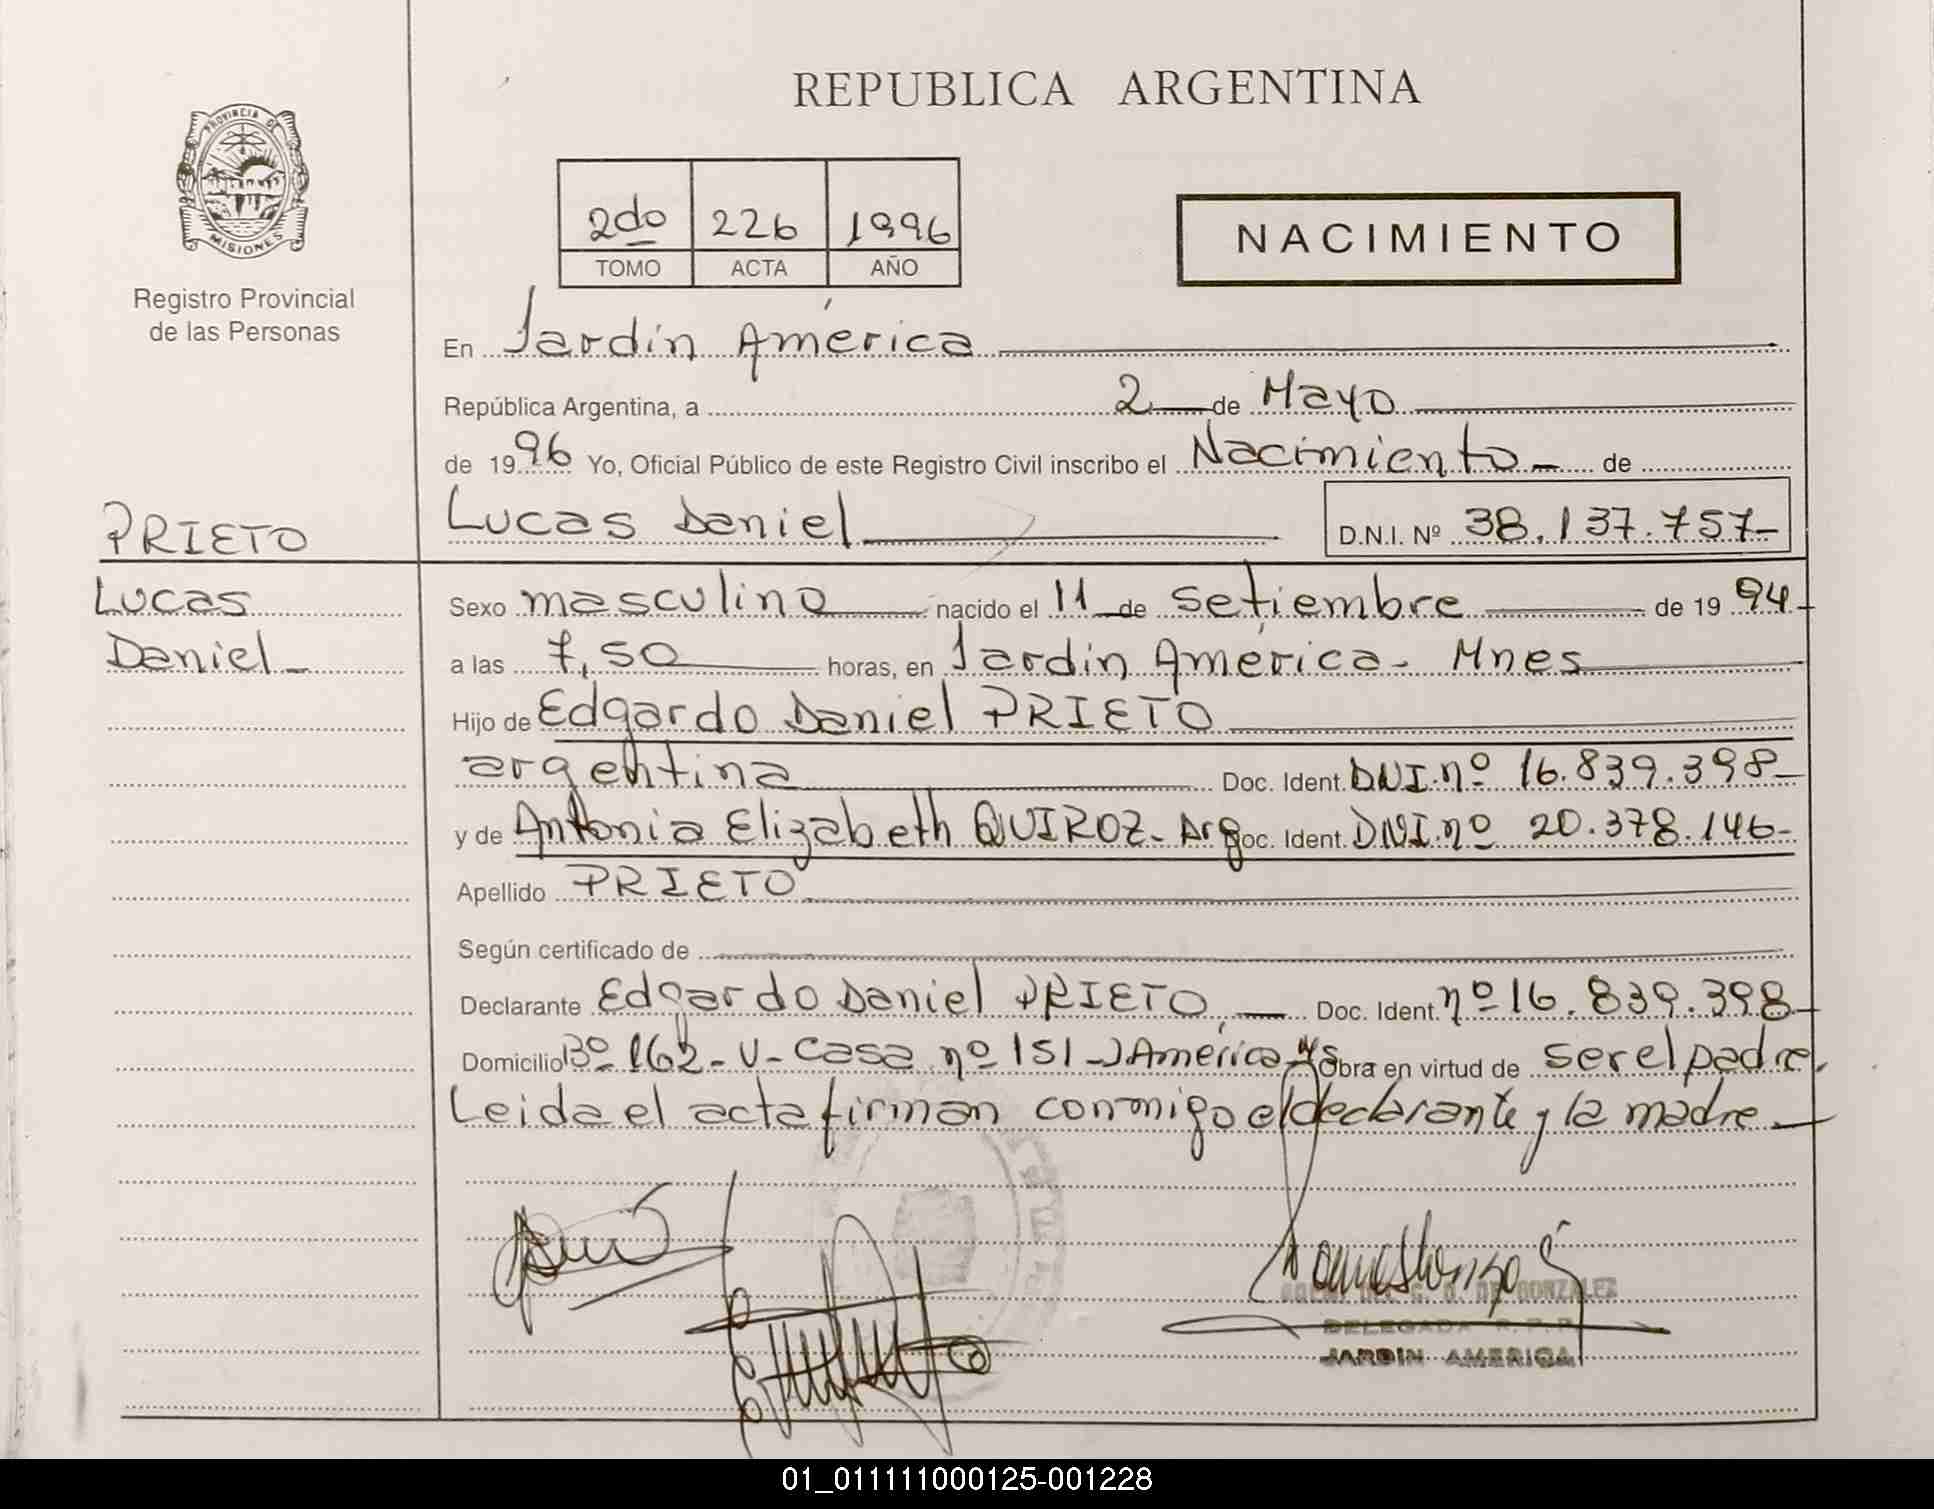 REPUBLICA ARGENTINA
PROVINCIA DE
MISIONES
Registro Provincial
de las Personas
2do 226 1996
TOMO ACTA AÑO
NACIMIENTO
En Jardín América
República Argentina, a 2 de Mayo
de 1996 Yo, Oficial Público de este Registro Civil inscribo el Nacimiento - de
PRIETO
Lucas Daniel D.N.I. Nº 38.137.757-
Lucas
Daniel -
Sexo masculino nacido el 11 de setiembre de 1994
a las 7,50 horas, en Jardín América - Mnes
Hijo de Edgardo Daniel PRIETO
argentina Doc. Ident. DNI.nº 16.839.398-
y de Antonia Elizabeth QUIROZ - Arg oc. Ident. DNI.nº 20.378.146-
Apellido PRIETO
Según certificado de
Declarante Edgardo Daniel PRIETO, Doc. Ident. nº 16.839.398
Domicilio Bº 162 - V - Casa nº 151 - J América - Obra en virtud de ser el padre.
Leida el acta firman conmigo el declarante y la madre
DE GONZALEZ
DELEGADA R.P.P.
JARDIN AMERICA
01_011111000125-001228